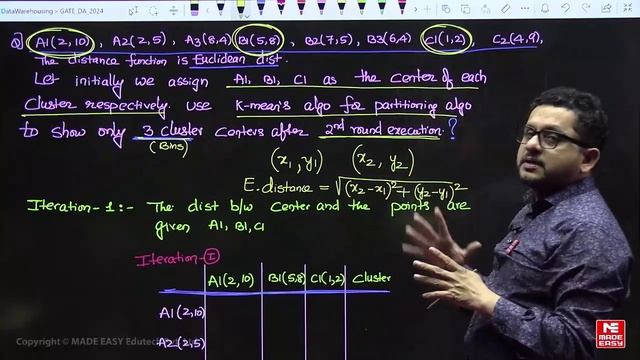 DataWarehousing > GATE_DA_2024
Q) A1(2,10), A2(2,5), A3(8,4) B1(5,8), B2(7,5), B3(6,4) C1(1,2), C2(4,9),
The distance function is Euclidean dist.
Let initially we assign A1, B1, C1 as the center of each
Cluster respectively. use K-mean's algo for partitioning algo
to show only 3 cluster centers after 2nd round execution. ?
(Bins)
(x1, y1) (x2, y2)
E. distance = √(x2-x1)²+(y2-y1)²
Iteration-1:- The dist b/w center and the points are
given A1, B1, C1
Iteration-I
A1(2,10) B1(5,8) C1(1,2) Cluster
A1(2,10)
A2(2,5)
Copyright © MADE EASY
MADE EASY